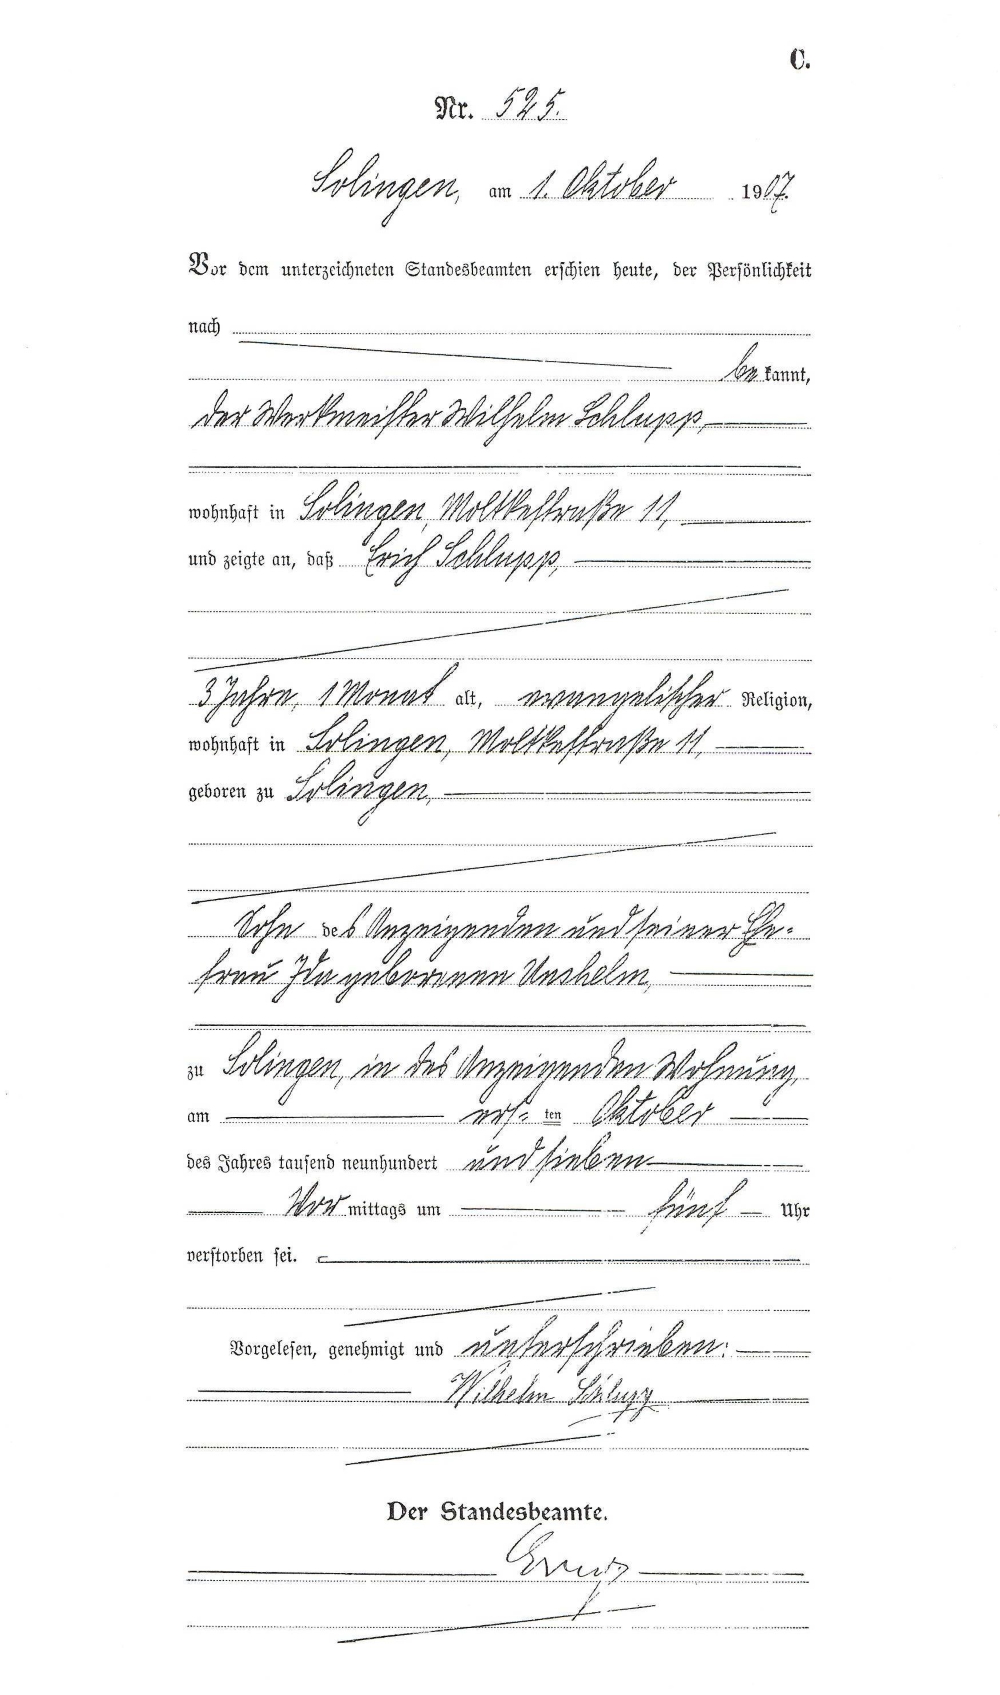 C.
Nr. 525.
Solingen, am 1. Oktober 1907.
Vor dem unterzeichneten Standesbeamten erschien heute, der Persönlichkeit
nach
be kannt,
der Werkmeister Wilhelm Schlupp,
wohnhaft in Solingen, Moltkestraße 11,
und zeigte an, daß Erich Schlupp,
3 Jahre, 1 Monat alt, evangelischer Religion,
wohnhaft in Solingen, Moltkestraße 11,
geboren zu Solingen,
Sohn des Anzeigenden und seiner Ehe-
frau Ida geborenen Unshelm,
zu Solingen, in des Anzeigenden Wohnung,
am ers- ten Oktober
des Jahres tausend neunhundert und sieben
Vor mittags um fünf Uhr
verstorben sei.
Vorgelesen, genehmigt und unterschrieben:
Wilhelm Schlupp
Der Standesbeamte.